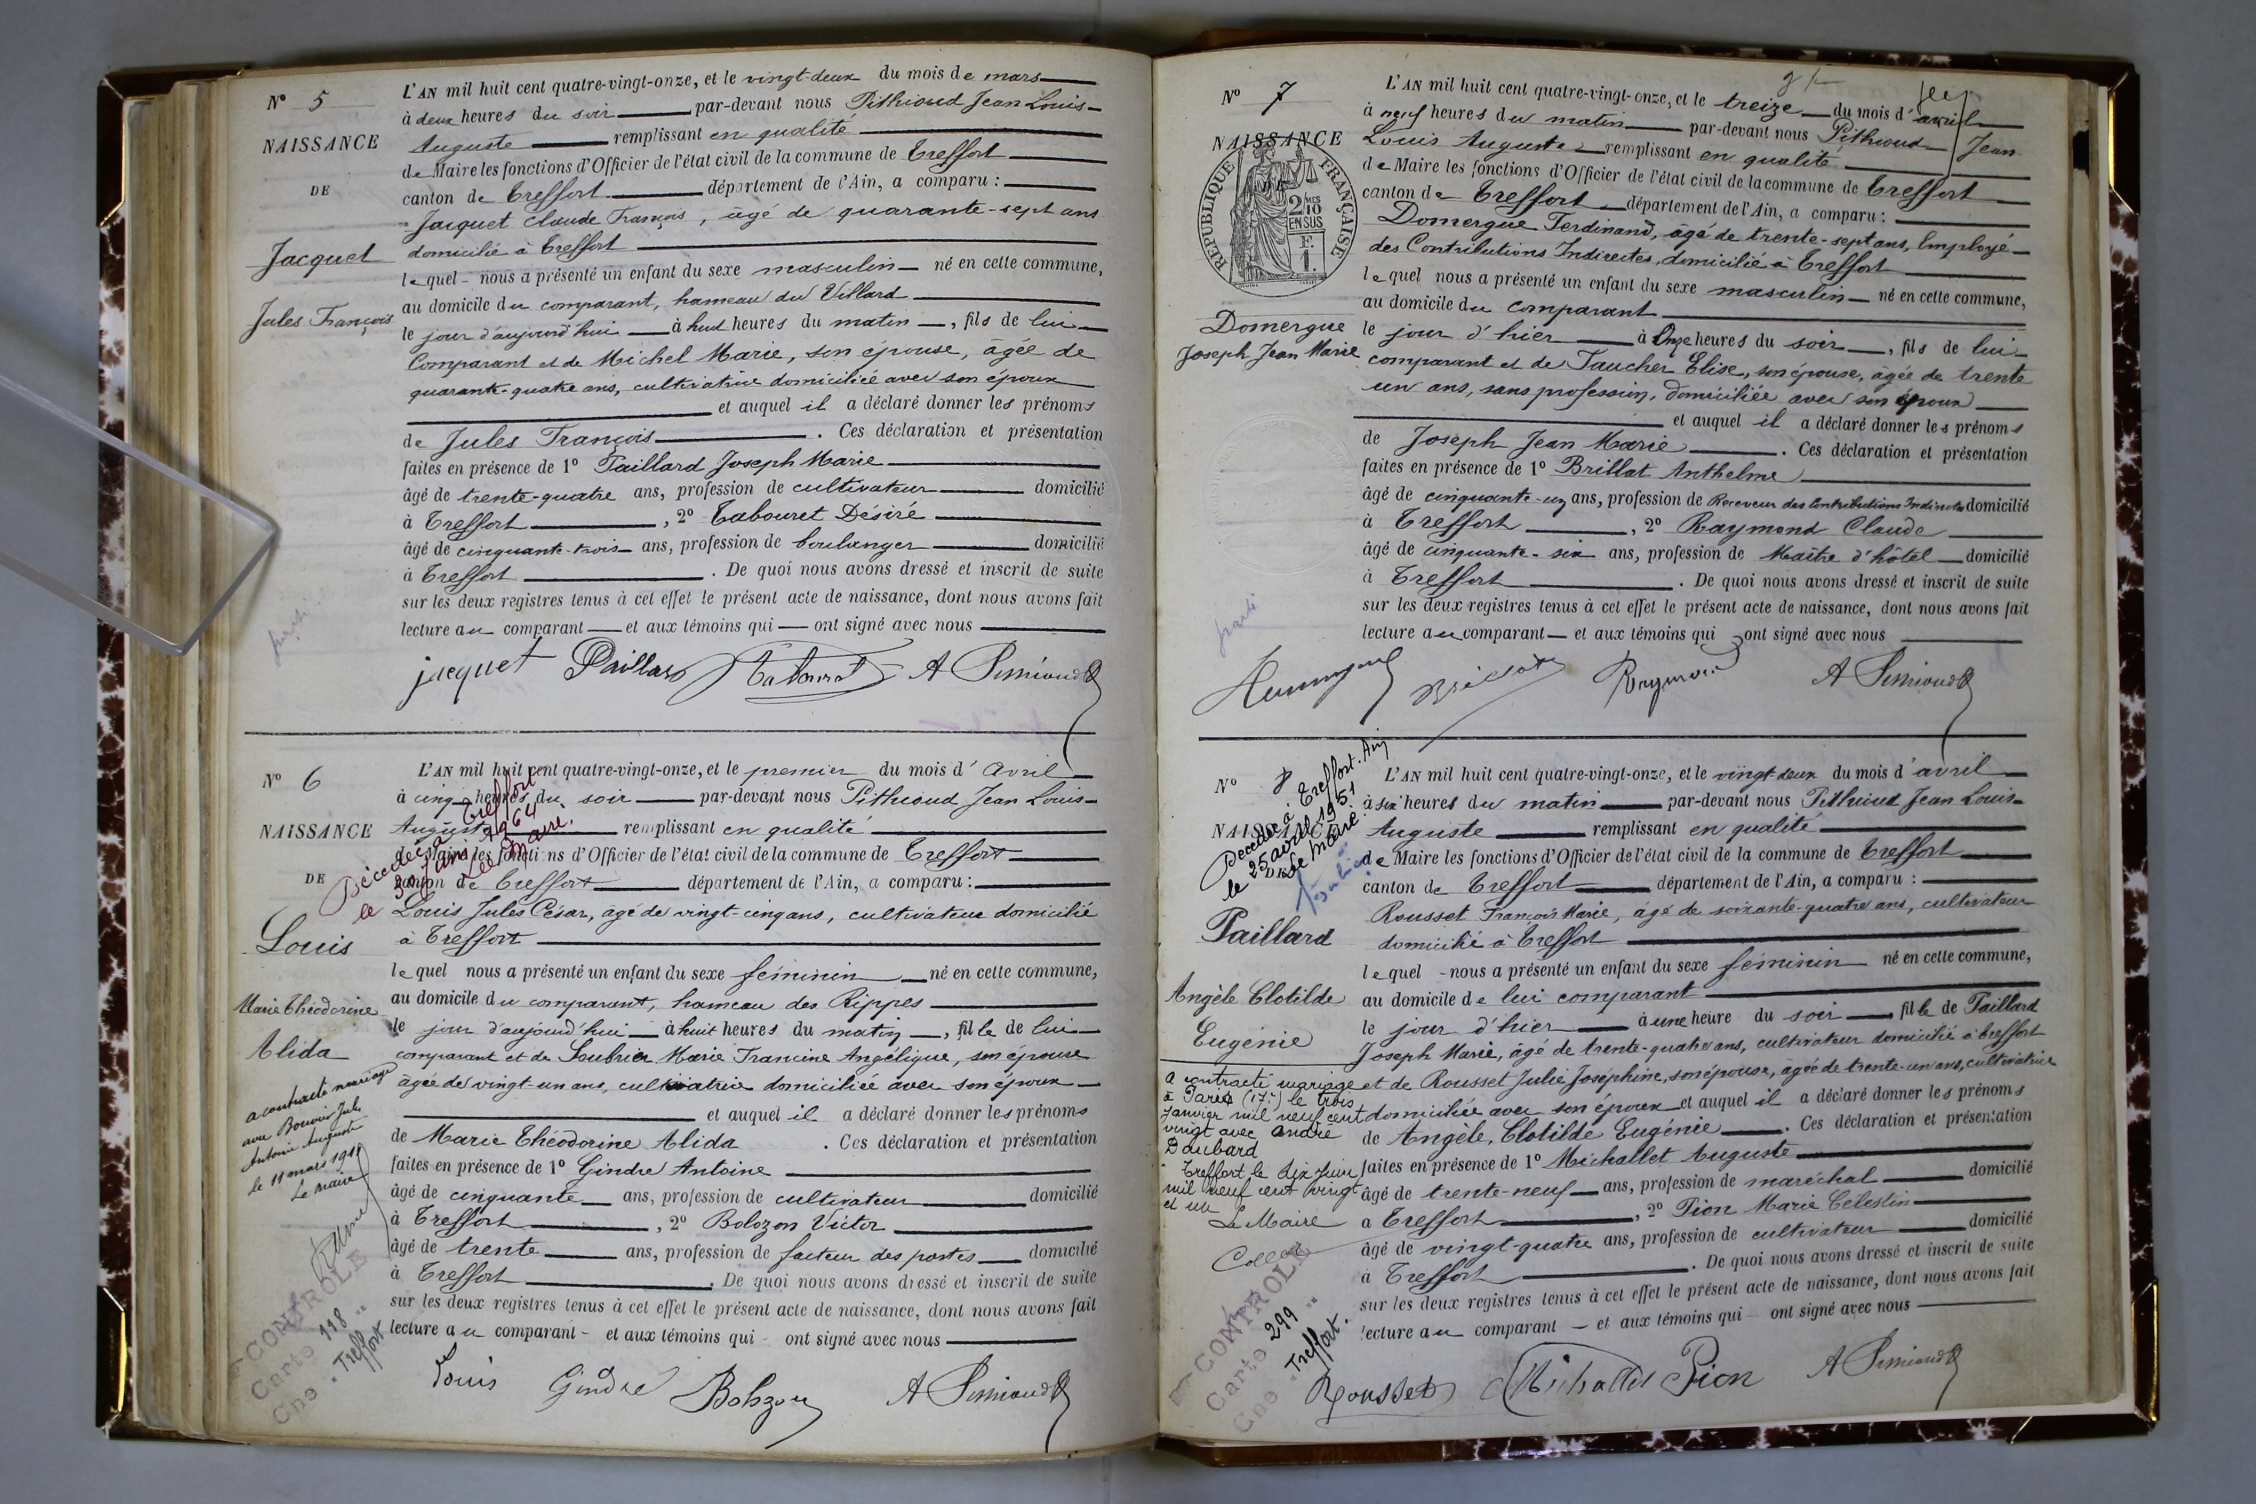 N° 5
NAISSANCE
DE
Jacquet
Jules François
L'AN mil huit cent quatre-vingt-onze, et le vingt-deux du mois de mars
à deux heures du soir par-devant nous Pithioud Jean Louis
Auguste remplissant en qualité
de Maire les fonctions d'Officier de l'état civil de la commune de Treffort
canton de Treffort département de l'Ain, a comparu :
Jacquet Claude François, âgé de quarante-sept ans
domicilié à Treffort
lequel nous a présenté un enfant du sexe masculin né en cette commune,
au domicile du comparant, hameau du Villard
le jour d'aujourd'hui à huit heures du matin, fils de lui
comparant et de Michel Marie, son épouse, âgée de
quarante-quatre ans, cultivatrice domiciliée avec son époux
et auquel il a déclaré donner les prénoms
de Jules François. Ces déclaration et présentation
faites en présence de 1° Paillard Joseph Marie
âgé de trente-quatre ans, profession de cultivateur domicilié
à Treffort, 2° Tabouret Désiré
âgé de cinquante-trois ans, profession de boulanger domicilié
à Treffort. De quoi nous avons dressé et inscrit de suite
sur les deux registres tenus à cet effet le présent acte de naissance, dont nous avons fait
lecture au comparant et aux témoins qui ont signé avec nous
jacquet Paillard Tabouret
N° 6
NAISSANCE
DE
Louis
Marie Théodorine
Alida
a contracté mariage
avec Bouvier Jules
Antoine Auguste
le 11 mars 1911
Le Maire
CONTROLE
Carte 118
Cne "Treffort"
Décédée à Treffort
le 30 Juin 1964
Le Maire.
L'AN mil huit cent quatre-vingt-onze, et le premier du mois d'avril
à cinq heures du soir par-devant nous Pithioud Jean Louis
Auguste remplissant en qualité
de Maire les fonctions d'Officier de l'état civil de la commune de Treffort
canton de Treffort département de l'Ain, a comparu :
Louis Jules César, âgé de vingt-cinq ans, cultivateur domicilié
à Treffort
lequel nous a présenté un enfant du sexe féminin né en cette commune,
au domicile du comparant, hameau des Rippes
le jour d'aujourd'hui à huit heures du matin, fille de lui
comparant et de Soubrier Marie Francine Angélique, son épouse
âgée de vingt-un ans, cultivatrice domiciliée avec son époux
et auquel il a déclaré donner les prénoms
de Marie Théodorine Alida. Ces déclaration et présentation
faites en présence de 1° Gindre Antoine
âgé de cinquante ans, profession de cultivateur domicilié
à Treffort, 2° Bolozon Victor
âgé de trente ans, profession de facteur des postes domicilié
à Treffort. De quoi nous avons dressé et inscrit de suite
sur les deux registres tenus à cet effet le présent acte de naissance, dont nous avons fait
lecture au comparant - et aux témoins qui - ont signé avec nous
Louis Gindre Bolozon
N° 7
NAISSANCE
RÉPUBLIQUE FRANÇAISE
2/10 MES
EN SUS
F.
1.
Domergue
Joseph Jean Marie
L'AN mil huit cent quatre-vingt-onze, et le treize du mois d'avril
à neuf heures du matin par-devant nous Pithioud Jean
Louis Auguste remplissant en qualité
de Maire les fonctions d'Officier de l'état civil de la commune de Treffort
canton de Treffort département de l'Ain, a comparu :
Domergue Ferdinand, âgé de trente-sept ans, Employé
des Contributions Indirectes, domicilié à Treffort
lequel nous a présenté un enfant du sexe masculin né en cette commune,
au domicile du comparant
le jour d'hier à onze heures du soir, fils de lui
comparant et de Faucher Elise, son épouse, âgée de trente
un ans, sans profession, domiciliée avec son époux
et auquel il a déclaré donner les prénoms
de Joseph Jean Marie. Ces déclaration et présentation
faites en présence de 1° Brillat Anthelme
âgé de cinquante-un ans, profession de Receveur des Contributions Indirectes domicilié
à Treffort, 2° Raymond Claude
âgé de cinquante-six ans, profession de Maître d'hôtel domicilié
à Treffort. De quoi nous avons dressé et inscrit de suite
sur les deux registres tenus à cet effet le présent acte de naissance, dont nous avons fait
lecture au comparant et aux témoins qui ont signé avec nous
Brillat Raymond
N° 8
NAISSANCE
DE
Décédée à Treffort. Ain
le 25 avril 1951
Le Maire :
Paillard
Angèle Clotilde
Eugénie
A contracté mariage
à Paris (17e) le trois
janvier mil neuf cent
vingt avec André
Daubard
Treffort le dix Juin
mil neuf cent vingt
et un
Le Maire
CONTROLE
Carte 299
Cne "Treffort"
L'AN mil huit cent quatre-vingt-onze, et le vingt-deux du mois d'avril
à six heures du matin par-devant nous Pithioud Jean Louis
Auguste remplissant en qualité
de Maire les fonctions d'Officier de l'état civil de la commune de Treffort
canton de Treffort département de l'Ain, a comparu :
Rousset François Marie, âgé de soixante-quatre ans, cultivateur
domicilié à Treffort
lequel - nous a présenté un enfant du sexe féminin né en cette commune,
au domicile de lui comparant
le jour d'hier à une heure du soir fille de Paillard
Joseph Marie, âgé de trente-quatre ans, cultivateur domicilié à Treffort
et de Rousset Julie Joséphine, son épouse, âgée de trente-un ans, cultivatrice
domiciliée avec son époux et auquel il a déclaré donner les prénoms
de Angèle, Clotilde Eugénie. Ces déclaration et présentation
faites en présence de 1° Michallet Auguste
âgé de trente-neuf ans, profession de maréchal domicilié
à Treffort, 2° Pion Marie Célestin
âgé de vingt-quatre ans, profession de cultivateur domicilié
à Treffort. De quoi nous avons dressé et inscrit de suite
sur les deux registres tenus à cet effet le présent acte de naissance, dont nous avons fait
lecture au comparant - et aux témoins qui - ont signé avec nous
Rousset Michallet Pion